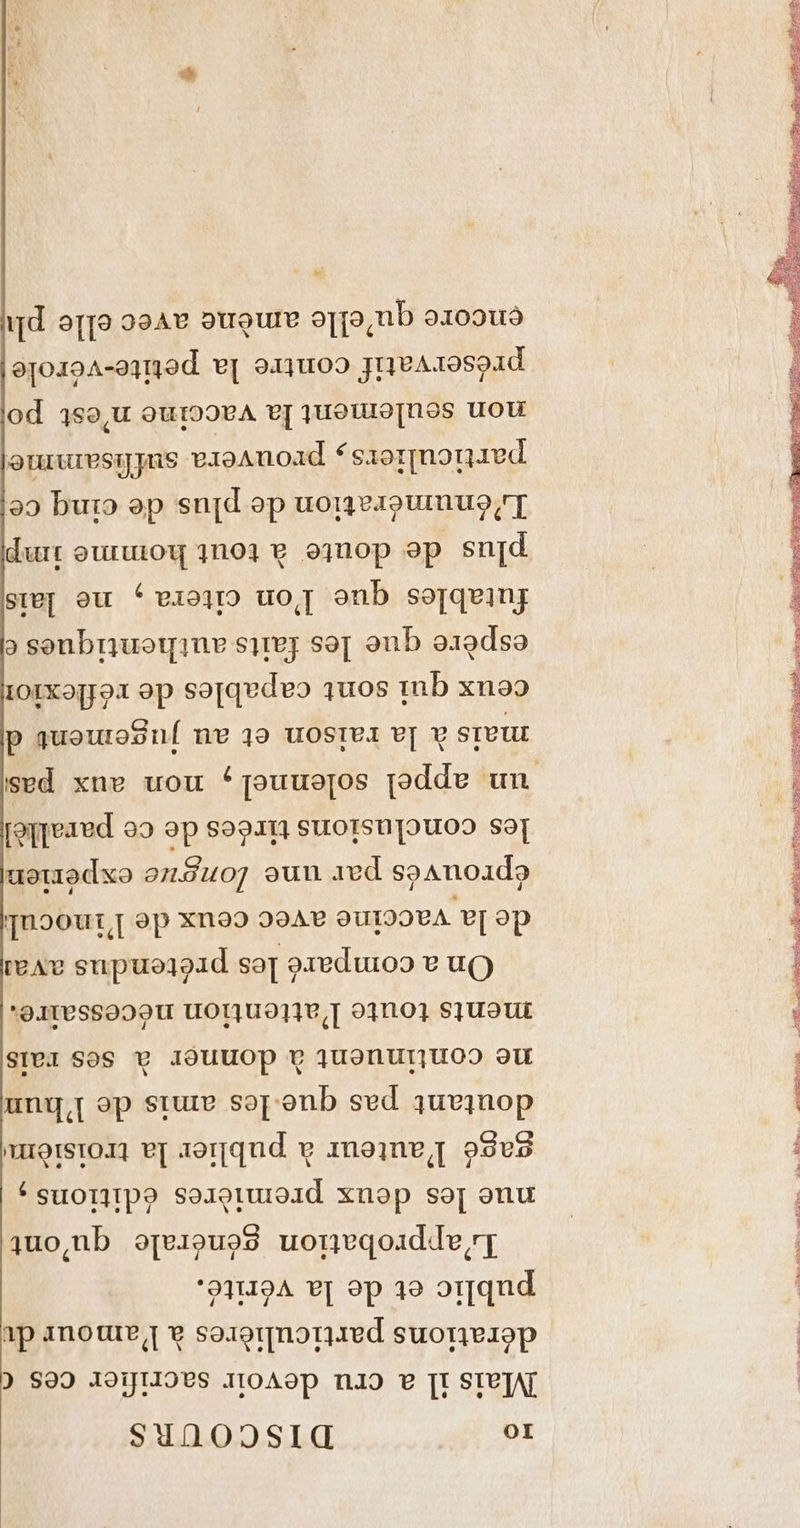 10 DISCOURS
Mais il a cru devoir sacrifier ces c
dérations particulières à l'amour d
public et de la vérité.
L'approbation générale qu'ont
eue les deux premières éditions,
gage l'auteur à publier la troisiem
doutant pas que les amis de l'hu
ne continuent à donner à ses rais
mens toute l'attention nécessaire.
On a comparé les prétendus avai
de la vaccine avec ceux de l'inocul
éprouvés par une longue expérien
les conclusions tirées de ce parallel
un appel solennel, non aux pas
mais à la raison et au jugement d
ceux qui sont capables de réflexion
espère que les faits authentiques c
futables que l'on citera, ne lais
plus de doute à tout homme imp
L'énumération de plus de cinq ce
particuliers, prouvera suffisamme
non seulement la vaccine n'est po
préservatif contre la petite-vérole
encore qu'elle amène avec elle plu